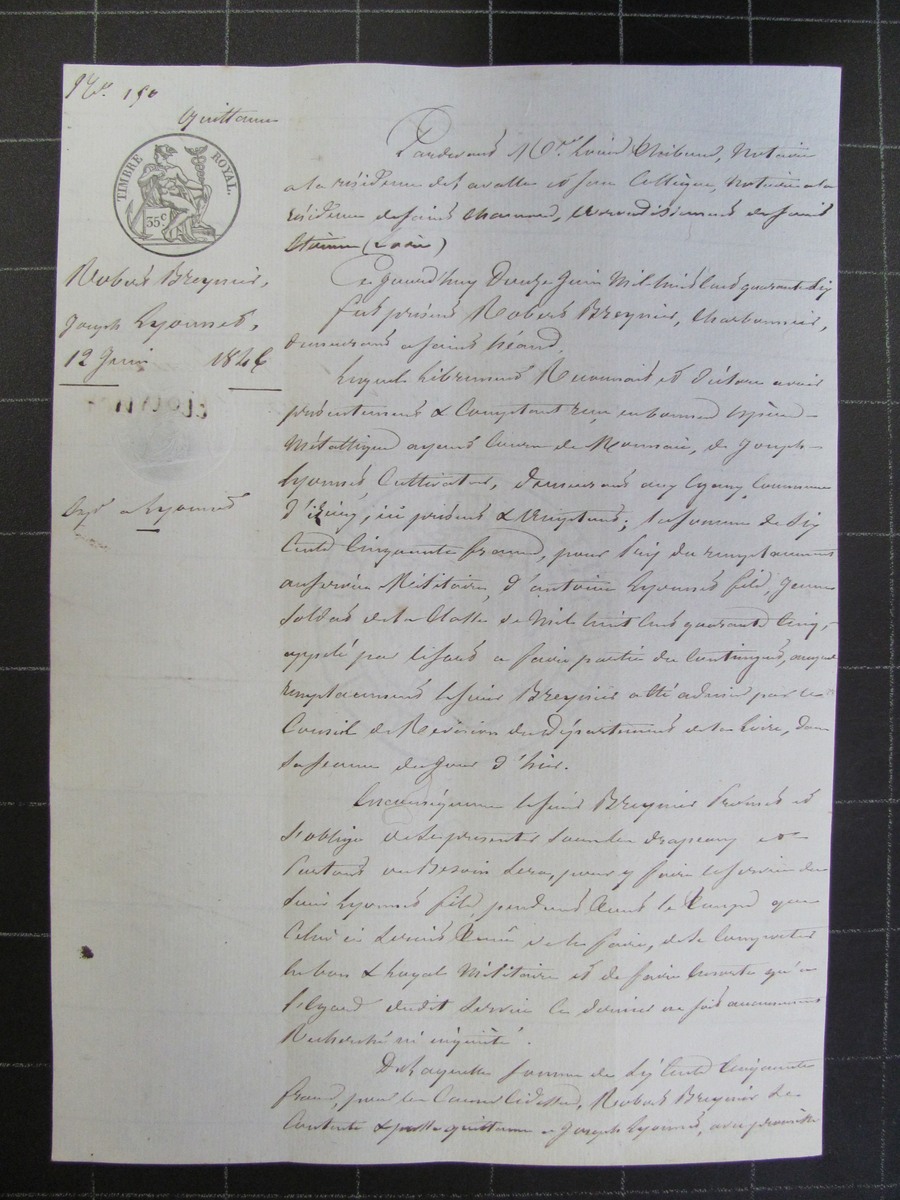 N° 190
Quittance
TIMBRE ROYAL.
35 c
Robert Breynier,
Joseph Lyonnet,
12 Juin 1846
Expé a Lyonnet
Pardevant Me Louis Thibaud, Notaire
a la résidence de Lavalla et son Collègue, notaire a la
résidence de Saint Chamond, arrondissement de Saint
Etienne (Loire)
Ce jourd'huy Douze Juin Mil huit cent quarante six
fut présent Robert Breynier, Charbonnier,
demeurant a Saint héand,
Lequel librement Reconnait et déclare avoir
présentement & Comptant reçu en bonnes espèces
Métallique ayant cours de Monnaie, de Joseph
Lyonnet Cultivateur, demeurant aux Commune
d'izieux, ici présent & acceptant; la somme de Six
Cents Cinquante francs, pour prix du remplacement
au service Militaire, d'antoine Lyonnet fils, Jeune
Soldat de la Classe de Mil huit cent quarante Cinq,
appelé par le sort a faire partie du Contingent, auquel
remplacement le sieur Breynier a été admis par le
Conseil de Révision du Département de la Loire, dans
sa séance du jour d'hier.
En conséquence le sieur Breynier Promet et
s'oblige de se présenter sous les drapeaux et
Partout ou Besoin sera, pour y faire le service du
sieur Lyonnet fils, pendant tout le temps que
Celui ci serait tenu de le faire, de se comporter
en bon & loyal Militaire et de faire ensorte qu'a
l'égard dudit service ce dernier ne soit aucunement
Recherché ni inquiété.
De laquelle somme de Six Cents Cinquante
francs, pour les Causes Cidessus, Robert Breynier se
Contente & passe quittance a Joseph Lyonnet, avec promesse